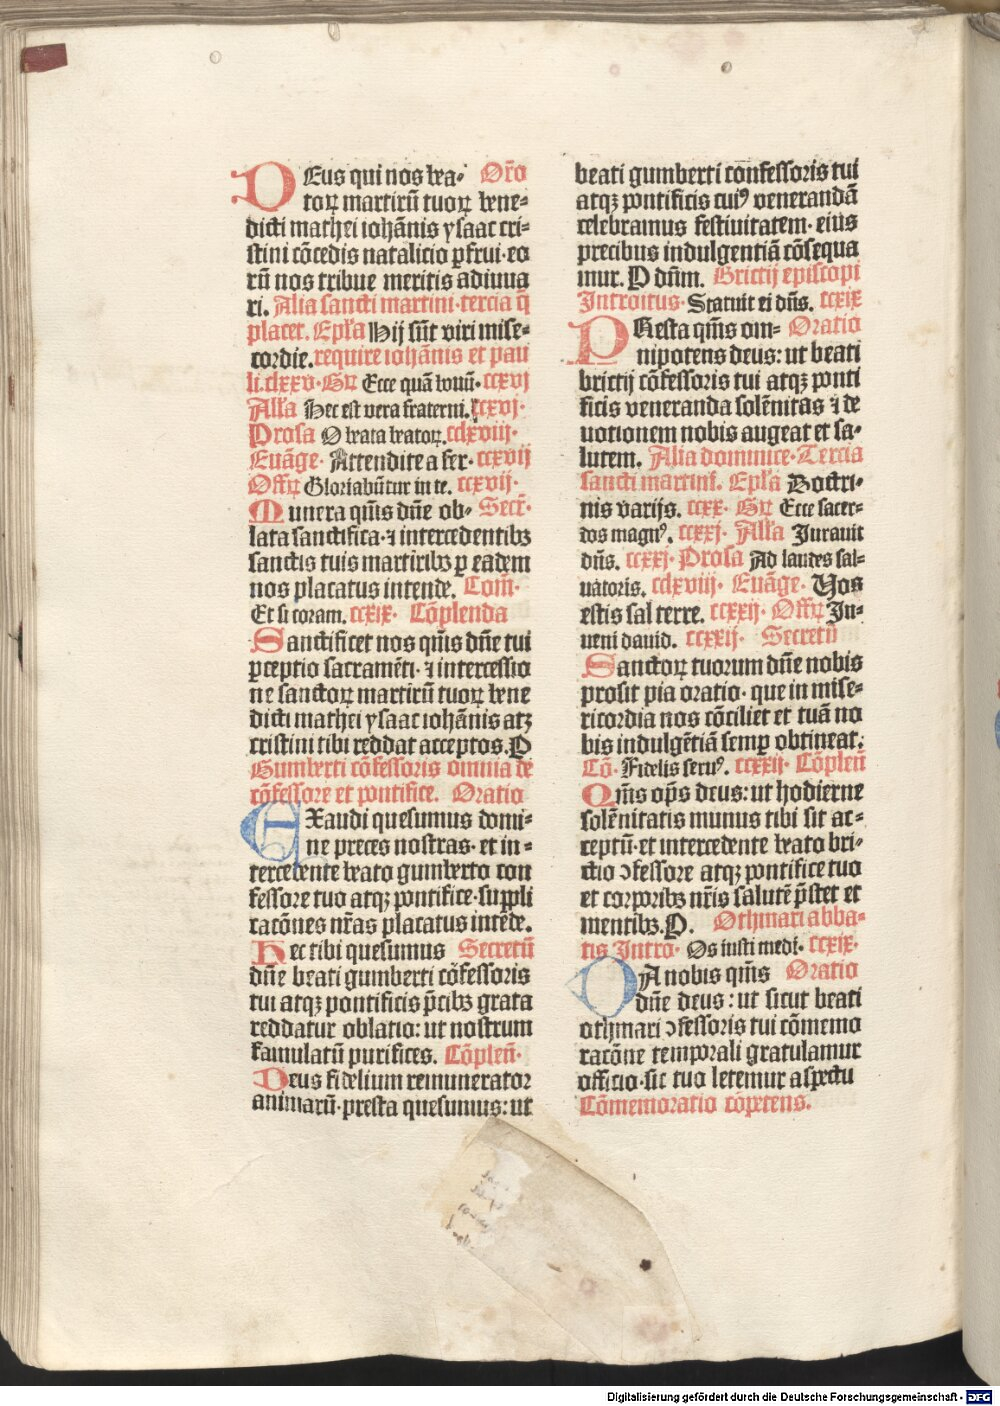 DEus qui nos bea- Orõ
toꝝ martirũ tuoꝝ bene-
dicti mathei iohãnis ysaac cri-
stini cõcedis natalicio ꝑfrui· eo
rũ nos tribue meritis adiuua
ri. Alia sancti martini· tercia q̃
placet. Epl'a Hij sũt viri mise-
cordie. require iohãnis et pau
li. clxxv· Gꝝ Ecce quã bonũ· ccxvj
All'a Hec est vera fraterni. ccxvj·
Prosa O beata beatoꝝ. cclxviij·
Euãge· Attendite a fer· ccxvij
Offꝝ Gloriabũtur in te. ccxvij·
Munera qm̃s dñe ob- Secr̃·
lata sanctifica· ⁊ intercedentibꝫ
sanctis tuis martiribꝫ ꝑ eadem
nos placatus intende. Com̃·
Et si coram. ccxix· Cõplenda
Sanctificet nos qm̃s dñe tui
ꝑceptio sacramẽti· ⁊ intercessio
ne sanctoꝝ martirũ tuoꝝ bene
dicti mathei ysaac iohãnis atꝫ
cristini tibi reddat acceptos. P
Gumberti cõfessoris omnia de
cõfessore et pontifice. Oratio
EXaudi quesumus domi-
ne preces nostras· et in-
tercedente beato gumberto con
fessore tuo atqꝫ pontifice· suppli
catõnes nr̃as placatus intẽde.
Hec tibi quesumus Secretũ
dñe beati gumberti cõfessoris
tui atqꝫ pontificis p̃cibꝫ grata
reddatur oblatio: ut nostrum
famulatũ purifices. Cõpleñ·
Deus fidelium remunerator
animarũ· presta quesumus: ut
beati gumberti confessoris tui
atqꝫ pontificis cuiꝰ venerandã
celebramus festiuitatem· eius
precibus indulgentiã cõsequa
mur. P dñm. Brictij episcopi
Introitus· Statuit ei dñs. ccxix
PResta qm̃s om- Oratio
nipotens deus: ut beati
brictij cõfessoris tui atqꝫ ponti
ficis veneranda solẽnitas ⁊ de
uotionem nobis augeat et sa-
lutem. Alia dominice· Tercia
sancti martini. Epl'a Doctri-
nis varijs. ccxx· Gꝝ Ecce sacer-
dos magnꝰ. ccxxj· All'a Iurauit
dñs. ccxxj· Prosa Ad laudes sal-
uatoris. cclxviij· Euãge· Vos
estis sal terre. ccxxij· Offꝝ In-
ueni dauid. ccxxij· Secretũ
Sanctoꝝ tuorum dñe nobis
prosit pia oratio· que in mise-
ricordia nos cõciliet et tuã no
bis indulgẽtiã semꝑ obtineat.
Cõ· Fidelis seruꝰ. ccxxij· Cõpleñ
Qm̃s op̃s deus: ut hodierne
solẽnitatis munus tibi sit ac-
ceptũ· et intercedente beato bri-
ctio ↄfessore atqꝫ pontifice tuo
et corporibꝫ nr̃is salutẽ p̃stet et
mentibꝫ. P. Othmari abba-
tis Intro· Os iusti medi· ccxix·
DA nobis qm̃s Oratio
dñe deus: ut sicut beati
othmari ↄfessoris tui cõmemo
ratõne temporali gratulamur
officio· sic tuo letemur aspectu
Cõmemoratio cõpetens.
Digitalisierung gefördert durch die Deutsche Forschungsgemeinschaft - DFG